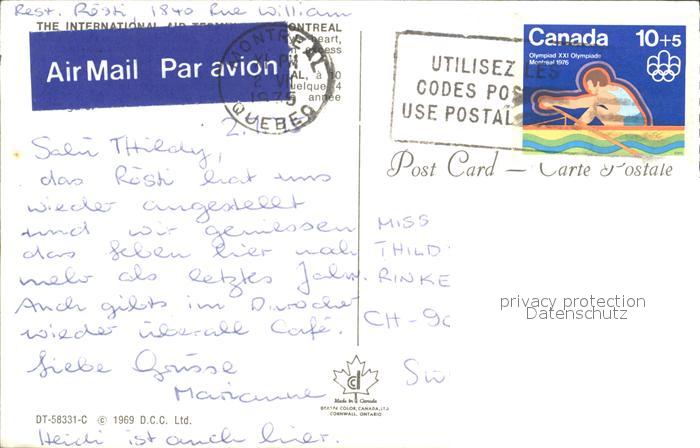 Rest. Rösti 1840 Rue William
THE INTERNATIONAL AIR MONTREAL
heart,
excess
AL, à 10
quelque 4
année
Air Mail Par avion
MONTREAL
PM
1975
QUEBEC
UTILISEZ LES
CODES POS
USE POSTAL
Canada 10+5
Olympiad XXI Olympiade
Montréal 1976
Post Card — Carte Postale
Salü Thildy,
das Rösti hat uns
wieder angestellt
und wir geniessen
das Leben hier noch
mehr als letztes Jahr.
Auch gibts im
wieder überall Café.
Liebe Grüsse
Marianne
Heidi ist auch hier.
MISS
THILD
RINKE
CH-90
Sw
privacy protection
Datenschutz
Made in Canada
DEXTER COLOR, CANADA, LTD.
CORNWALL, ONTARIO
DT-58331-C © 1969 D.C.C. Ltd.